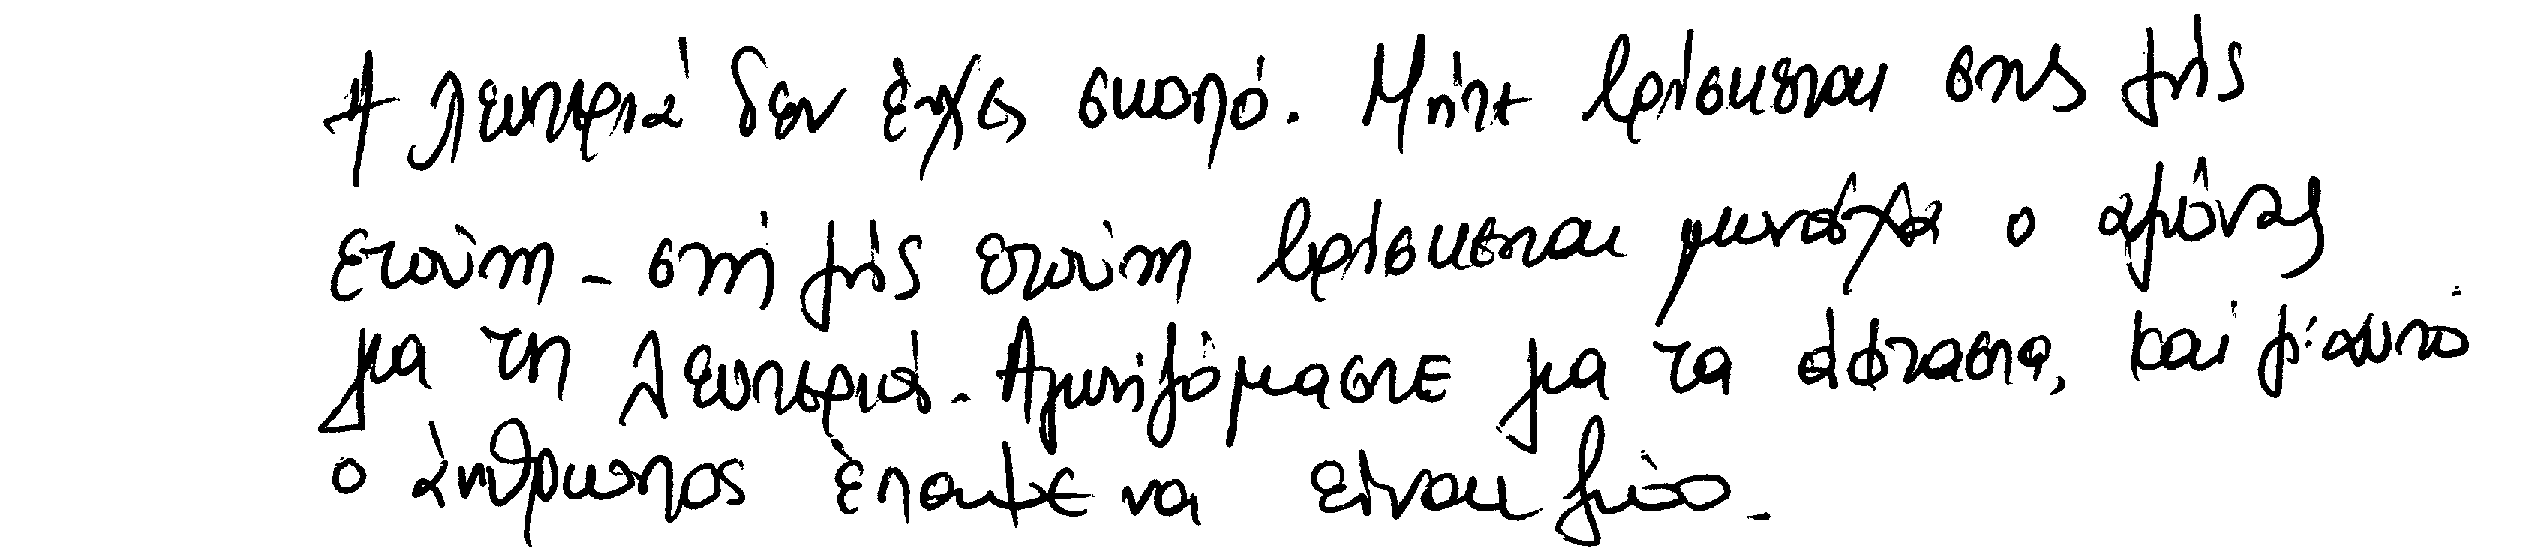 Η λευτεριά δεν έχει σκοπό. Μήτε βρίσκεται στης γής
ετούτη - στή γής ετούτη βρίσκεται μονάχα ο αγώνας
για τη λευτεριά. Αγωνιζόμαστε για τα άφταστα, και γι' αυτό
ο άνθρωπος έπαψε να είναι ζώο.